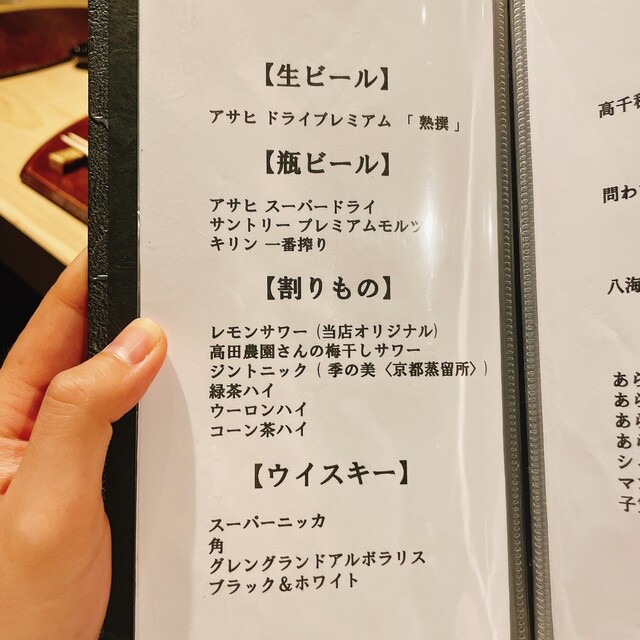 【生ビール】
アサヒ ドライプレミアム 「 熟撰 」
【瓶ビール】
アサヒ スーパードライ
サントリー プレミアムモルツ
キリン 一番搾り
【割りもの】
レモンサワー (当店オリジナル)
高田農園さんの梅干しサワー
ジントニック ( 季の美〈京都蒸留所〉)
緑茶ハイ
ウーロンハイ
コーン茶ハイ
【ウイスキー】
スーパーニッカ
角
グレングランドアルボラリス
ブラック＆ホワイト
高千
問わ
八海
あら
あら
あら
あら